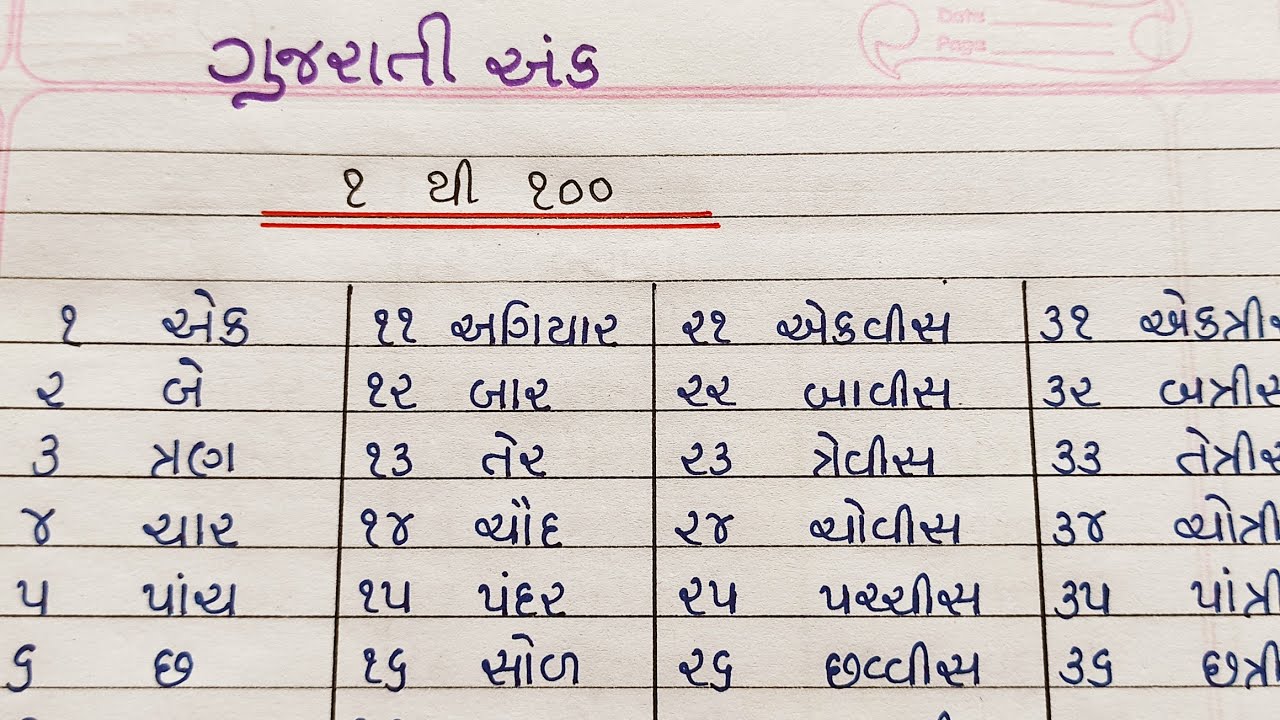 Date
Page
ગુજરાતી અંક
૧ થી ૧૦૦
૧ એક ૧૧ અગિયાર ૨૧ એકવીસ ૩૧ એકત્રીસ
૨ બે ૧૨ બાર ૨૨ બાવીસ ૩૨ બત્રીસ
૩ ત્રણ ૧૩ તેર ૨૩ ત્રેવીસ ૩૩ તેત્રીસ
૪ ચાર ૧૪ ચૌદ ૨૪ ચોવીસ ૩૪ ચોત્રી
૫ પાંચ ૧૫ પંદર ૨૫ પચ્ચીસ ૩૫ પાંત્રી
૬ છ ૧૬ સોળ ૨૬ છવ્વીસ ૩૬ છત્રી